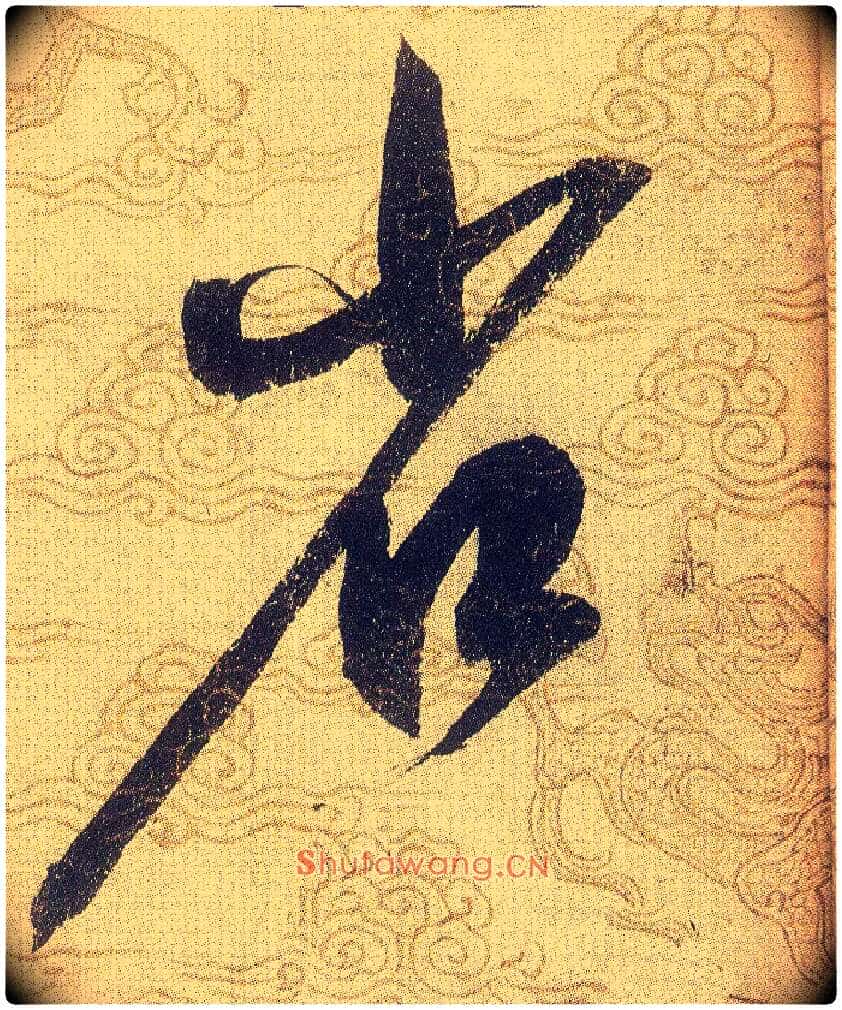 省
Shufawang.CN